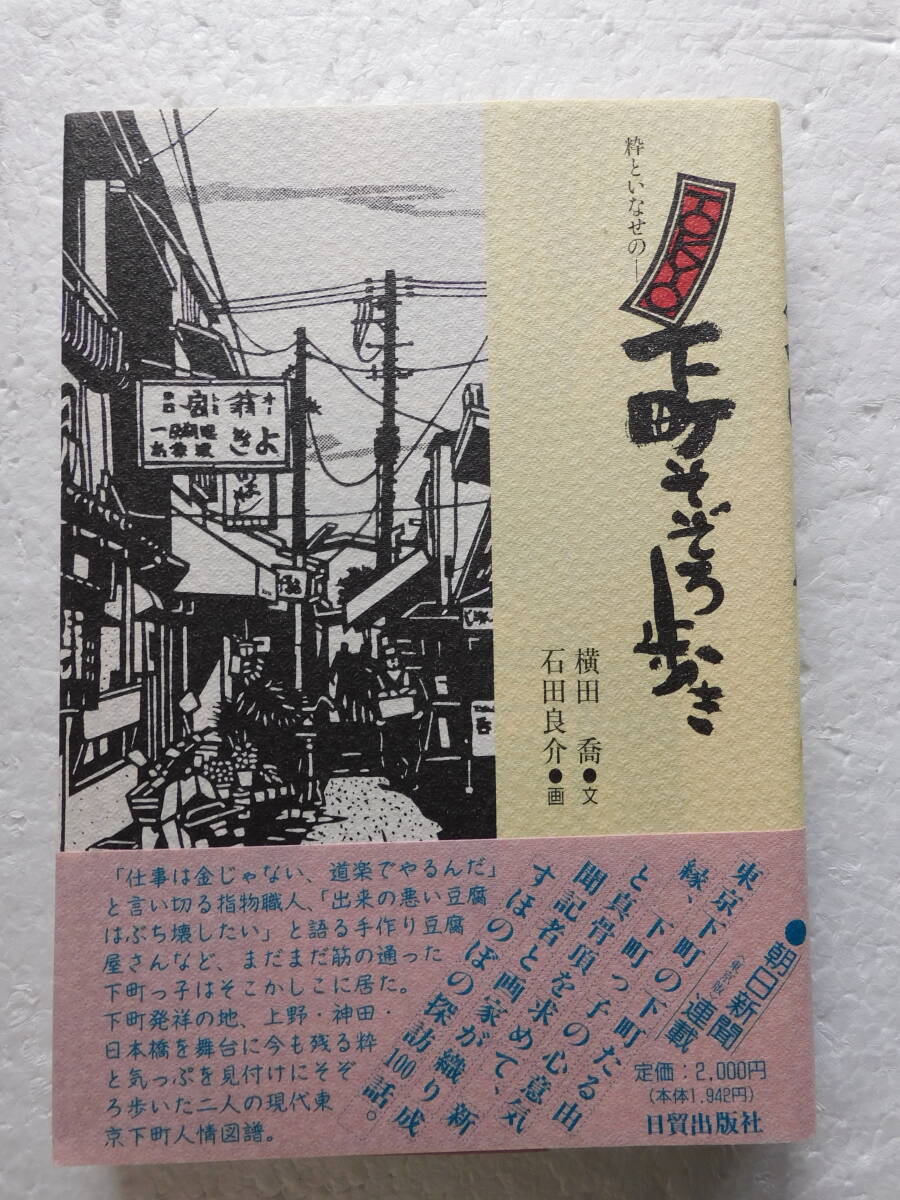 粋といなせの―
TOKYO
下町そぞろ歩き
横田 喬●文
石田良介●画
●朝日新聞
(東京版)連載
東京下町の下町たる由
縁、下町っ子の心意気
と真骨頂を求めて、新
聞記者と画家が織り成
すほのぼの探訪100話。
「仕事は金じゃない、道楽でやるんだ」
と言い切る指物職人、「出来の悪い豆腐
はぶち壊したい」と語る手作り豆腐
屋さんなど、まだまだ筋の通った
下町っ子はそこかしこに居た。
下町発祥の地、上野・神田・
日本橋を舞台に今も残る粋
と気っぷを見付けにそぞ
ろ歩いた二人の現代東
京下町人情図譜。
定価:2,000円
(本体1,942円)
日貿出版社